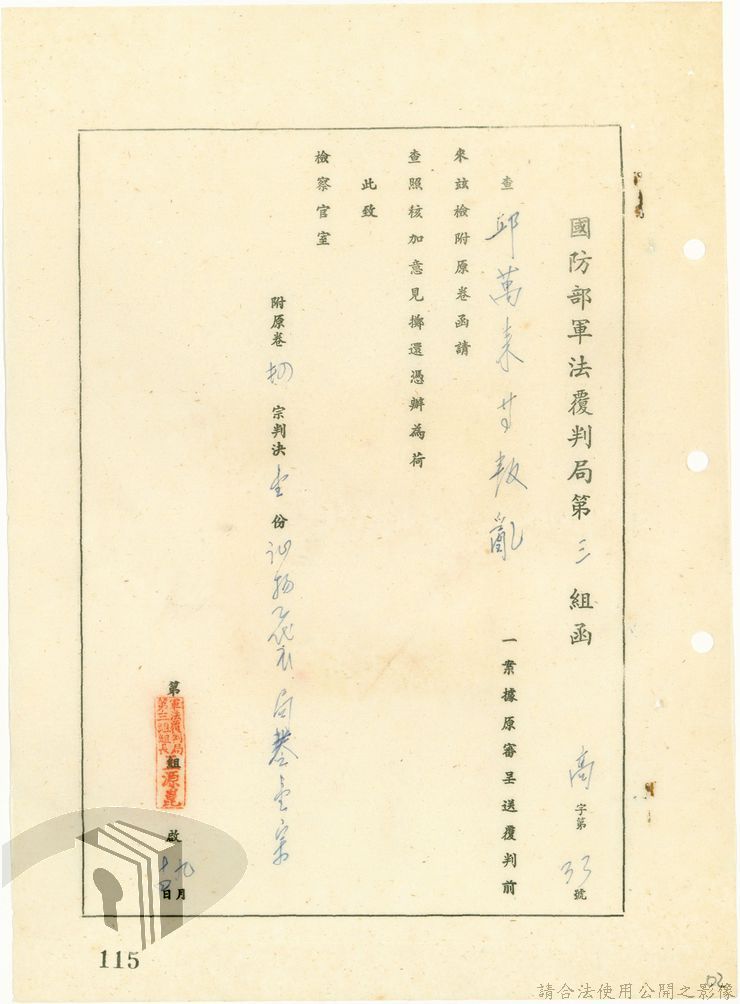 國防部軍法覆判局第三組函 高字第33號
查邱萬來等叛亂一案據原審呈送覆判前
來茲檢附原卷函請
查照核加意見擲還憑辦為荷
此致
檢察官室
附原卷 宗判決壹份 局卷壹宗
第 組 啟
軍法覆判局
第三組組長
源崑
九月十四日
115
請合法使用公開之影像